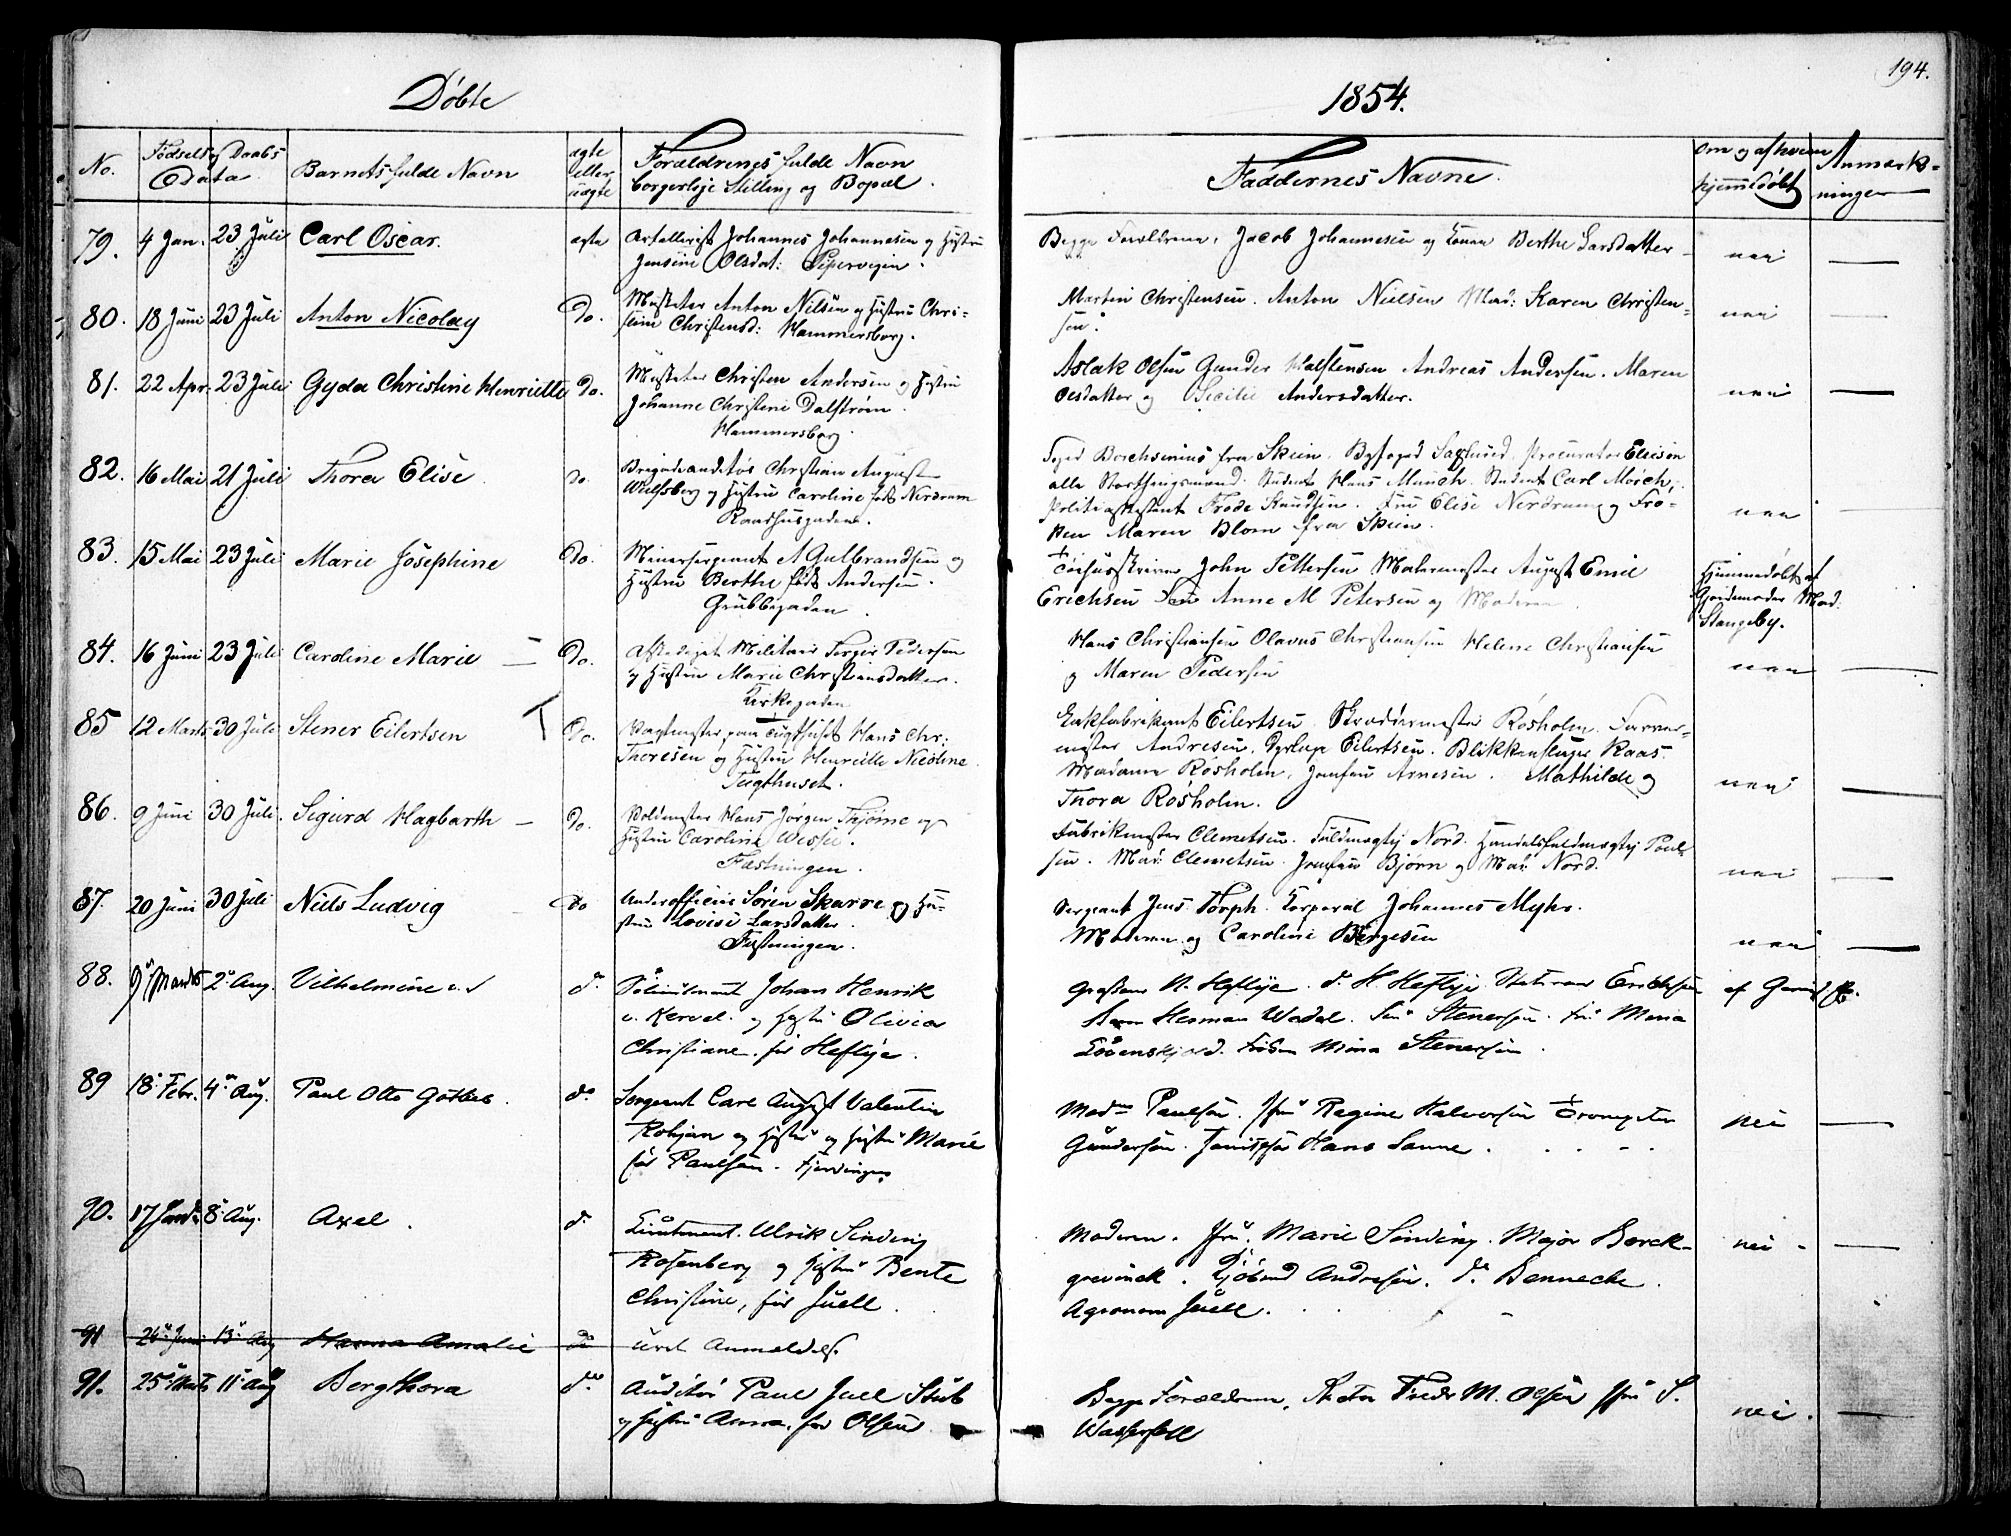 194.
Døbte
1854.
No. Fødsels og Daabs Data Barnets fulde Navn ægte eller uægte Forældrenes fulde Navn borgerlige Stilling og Bopæl. Faddernes Navne. Om og af hvem hjemmedøbt Anmærkninger
79. 4 Jan. 23 Juli Carl Oscar. ægte Artellerist Johannes Johannesen og Hustru
Jensine Olsdat: Pipervigen.
Begge Forældrene, Jacob Johannesen og Kone Berthe Larsdatter nei
80. 18 Juni 23 Juli Anton Nicolay Do. Musketer Anton Nilsen og Hustru Chri-
stine Christensd: Hammersborg.
Martin Christensen. Anton Nielsen Mad: Karen Christen-
sen. nei
81. 22 Apr. 23 Juli Gyda Christine Henriette Do. Musketer Christen Andersen og Hustru
Johanne Christine Dalstrøm.
Hammersborg.
Aslak Olsen Gunder Halstensen Andreas Andersen. Maren
Olsdatter og Cecilie Andersdatter. nei
82. 16 Mai 21 Juli Thora Elise Do. Brigadeauditør Christian August
Wulfsberg og Hustru Caroline født Nordrum
Raadhusgaden.
Foged Borchsenius fra Skien. Byfoged Procurator Ellison
alle Storthingsmænd. Student Hans Munch. Student Carl Mørch,
Frode Knudsen. Fru Elise Nordrum og Frø-
ken Maren Blom fra Skien. nei
83. 15 Mai 23 Juli Marie Josephine Do. Minersergeant A Gulbrandsen og
Hustru Berthe født Andersen.
Grubbegaden.
John Pettersen Malermester August Emil
Erichsen Anne M Petersen og Moderen
Hjemmedøbt af
Gjordemoder Mad:
Stangeby.
84. 16 Juni 23 Juli Caroline Marie Do. Afskediget Militair Torger Pedersen
og Hustru Marie Christiansdatter.
Kirkegaden
Hans Christiansen Olavus Christiansen Helene Christiansen
og Maren Pedersen nei
85 12 Marts 30 Juli Stener Eilertsen Do. Vagtmester paa Tugthuset Hans Chr:
Thoresen og Hustru Henriette Nicoline.
Tugthuset.
Lakfabrikant Eilertsen. Skræddermester Røsholm. Farver-
mester Andresen. Eilertsen. Blikkenslager Raas.
Madame Røsholm, Jomfru Arnesen. Mathilde og
Thora Røsholm. nei
86. 9 Juni 30 Juli. Sigurd Hagbarth Do. Voldmester Hans Jørgen Thjøme og
Hustru Caroline Wessel.
Fæstningen.
Fabrikmester Clemetsen. Fuldmægtig Nord. Handelsfuldmægtig Poul-
sen. Mad: Clemetsen. Jomfru Bjørn og Mad: Nord. nei
87. 20 Juni 30 Juli Niels Ludvig Do Underofficier Søren Skarre og Hu-
stru Lovise Larsdatter.
Fæstningen.
Sergeant Jens Thorph. Korporal Johannes Myhr.
Moderen og Caroline Børgesen nei
88. 9 Marts 2 Aug. Vilhelmine d. Johan Henrik
v. Kervel. og Hustru Olivia
Christiane, før Heftye.
Grosserer N. Heftye. d. H Heftye Statsraa Erichsen
Herman Wedel. Stenersen. Fru Maria
Løvenskjold. Frøken Mina Stenersen.
89 18 Febr. 4 Aug. Paul Otto Gotlieb. d. Sergeant Carl August Valentin
og Hustru og Hustru Marie
før Paulsen. Fjerdingen
Mad Paulsen. Jfru Regine Halvorsen Trompeter
Gundersen. Hans Sanne. nei
90. 17 8 Aug. Axel. d. Lieutenant. Ulrik Sinding
Rosenberg og Hustru Bente
Christine, før Juell.
Moderen. Fru Marie Sinding. Major Borck-
grevinck. Kjøbmd Andresen. d. Bennecke.
Agronom Juell. nei
91 26 Juni 13 Aug Hanna Amalie do uret Anmeldels.
91. 25 Marts 11 Aug Bergthora d. Auditør Paul Juell Stub
og Hustru Anna, før Olsen
Begge Forældrene, Fredr M. Olsen Jfru S.
Wasserfall nei.